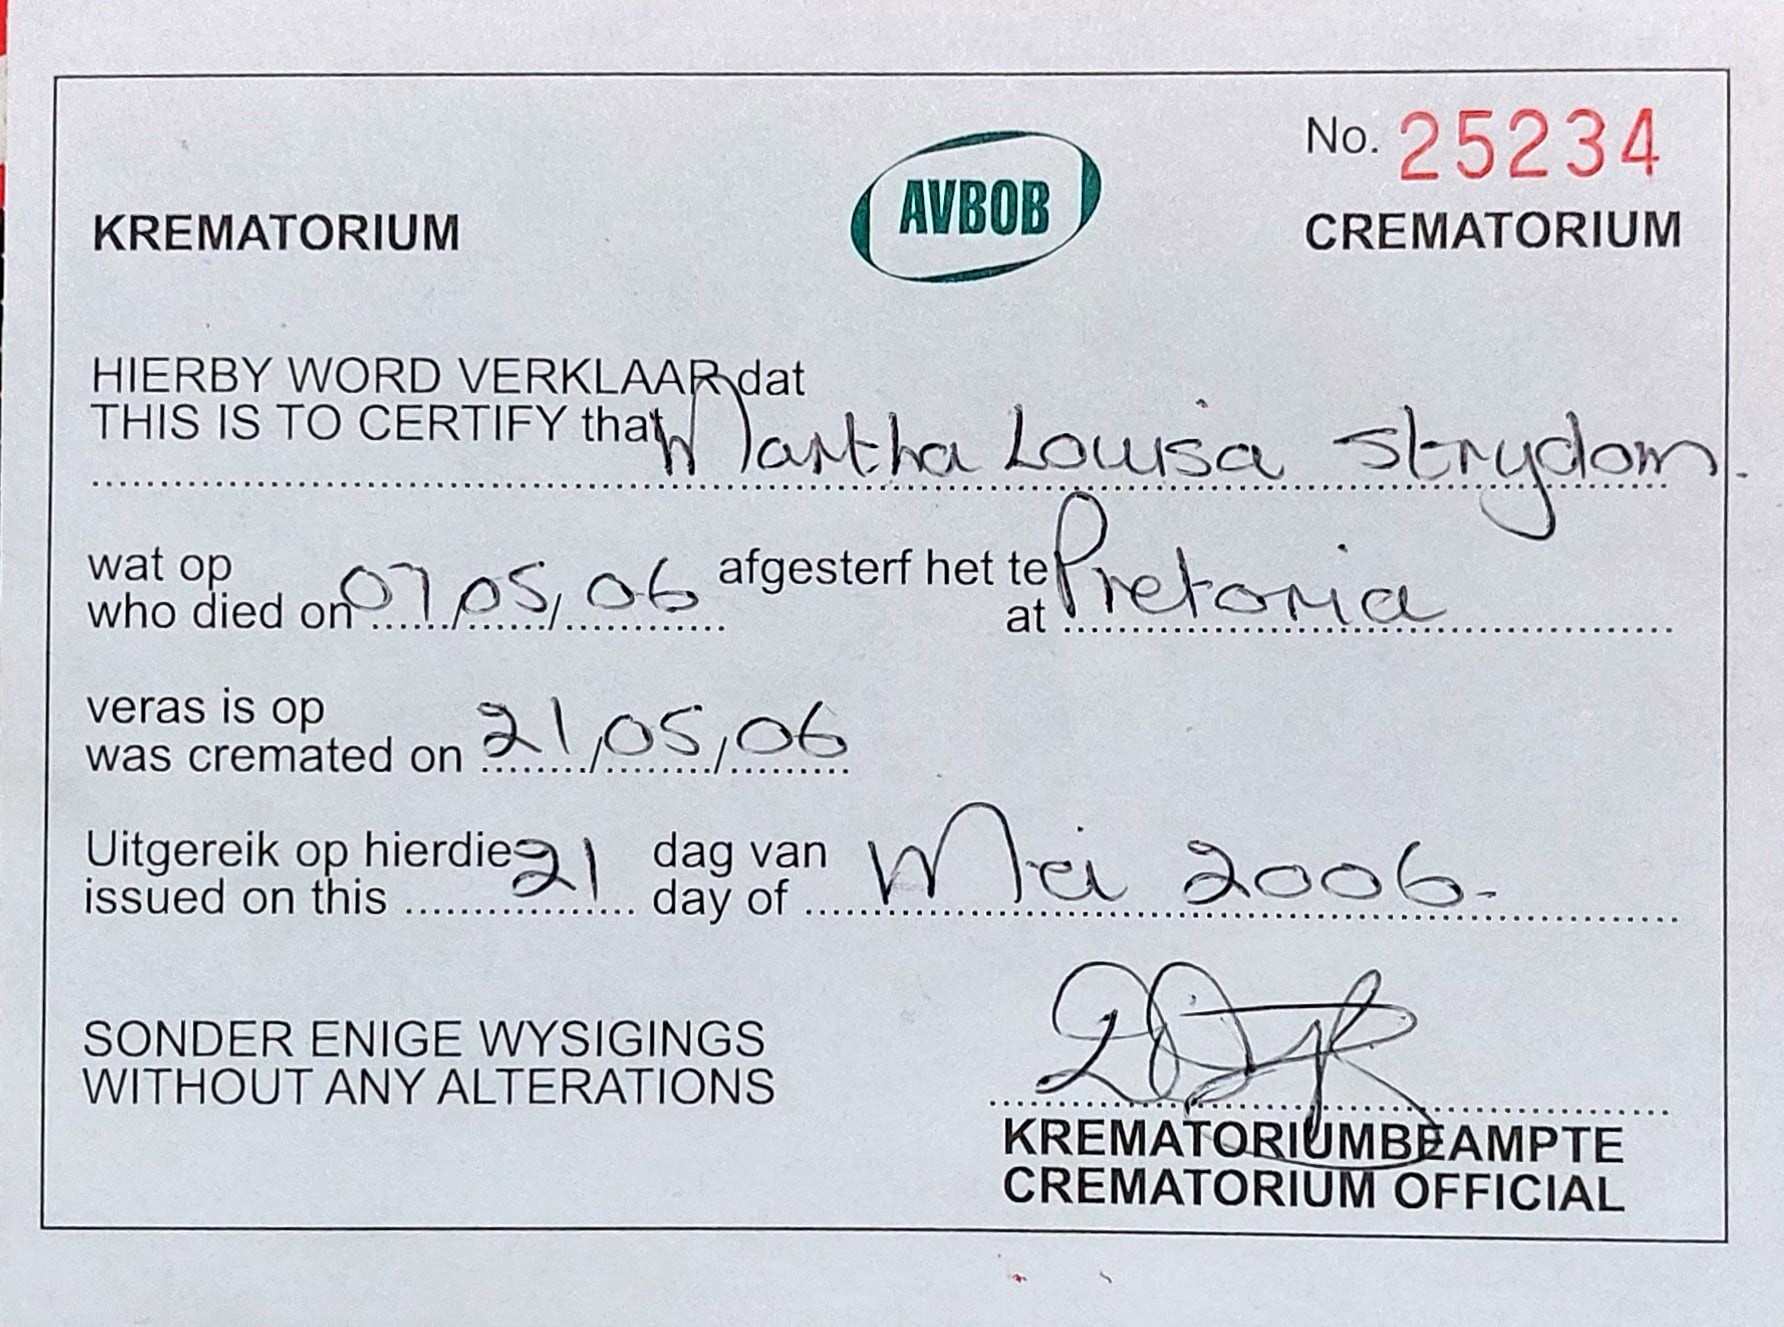 No. 25234
AVBOB
KREMATORIUM
CREMATORIUM
HIERBY WORD VERKLAAR dat
THIS IS TO CERTIFY that Martha Louisa Strydom.
wat op
who died on 07/05/06
afgesterf het te
at Pretoria
veras is op
was cremated on 21/05/06
Uitgereik op hierdie 21 dag van Mei 2006.
issued on this day of
SONDER ENIGE WYSIGINGS
WITHOUT ANY ALTERATIONS
KREMATORIUMBEAMPTE
CREMATORIUM OFFICIAL